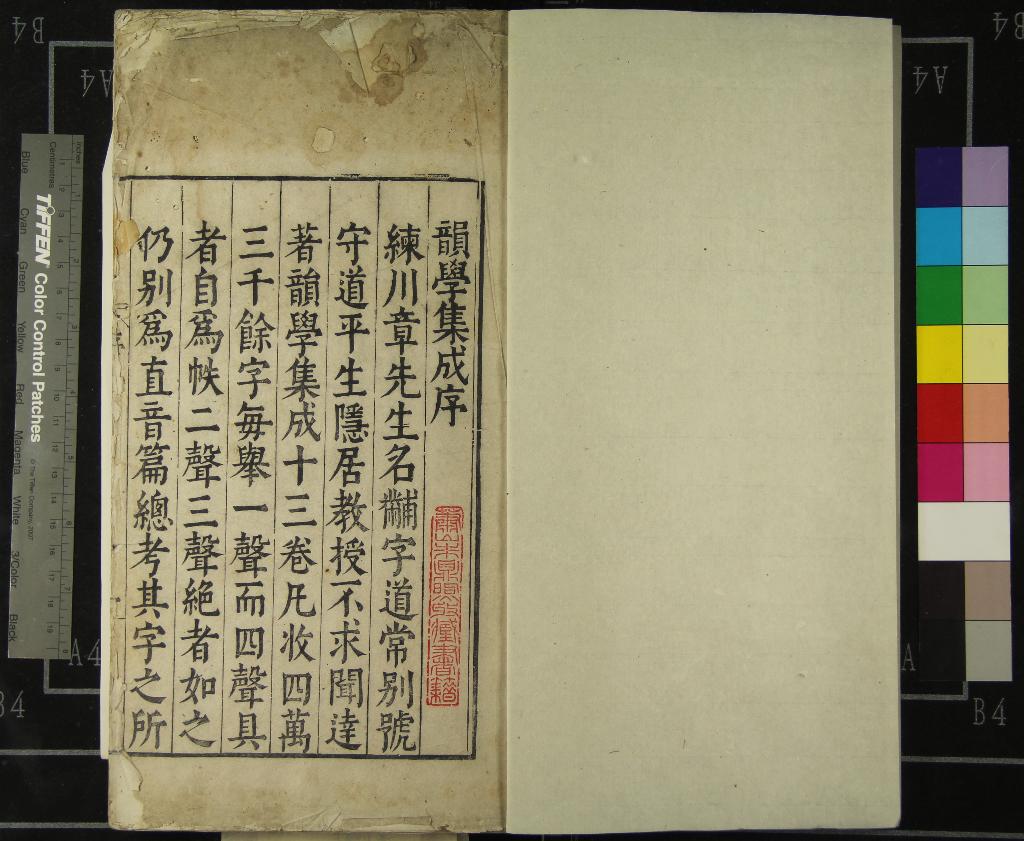 韻學集成序
練川章先生名黼字道常别號
守道平生隱居教授不求聞達
著韻學集成十三卷凡收四萬
三千餘字毎舉一聲而四聲具
者自爲帙二聲三聲絶者如之
仍别爲直音篇總考其字之所
B4
A4
A4
B4
B4
A4
A
B4
Inches
Centimetres
TIFFEN Color Control Patches
© The Tiffen Company, 2007
Blue
Cyan
Green
Yellow
Red
Magenta
White
3/Color
Black